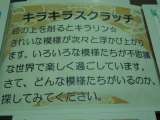 キラキラスクラッチ
絵の上を削るとキラリン☆
きれいな模様が次々と浮かび上がり
ます。いろいろな模様たちが不思議
な世界で楽しく過ごしています。
さて、どんな模様たちがいるのか、
探してみてください。